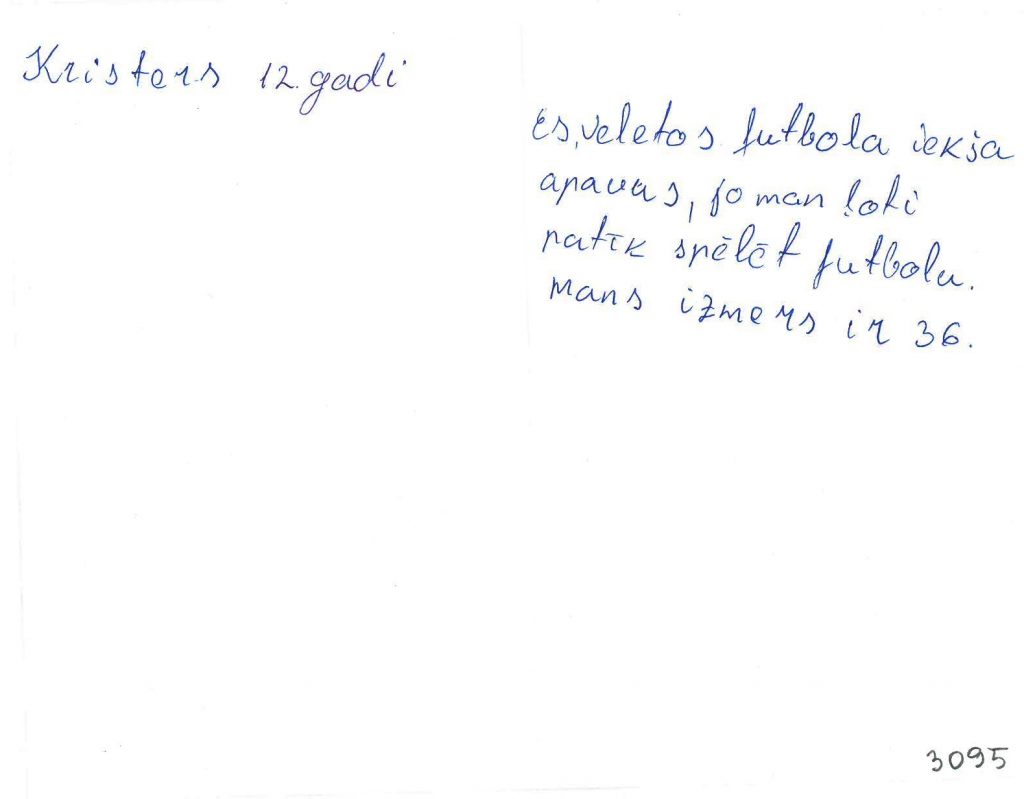 Kristers 12.gadi
Es, veletos futbola iekša
apavus, jo man ļoti
patīk spēlēt futbolu.
mans izmers ir 36.
3095